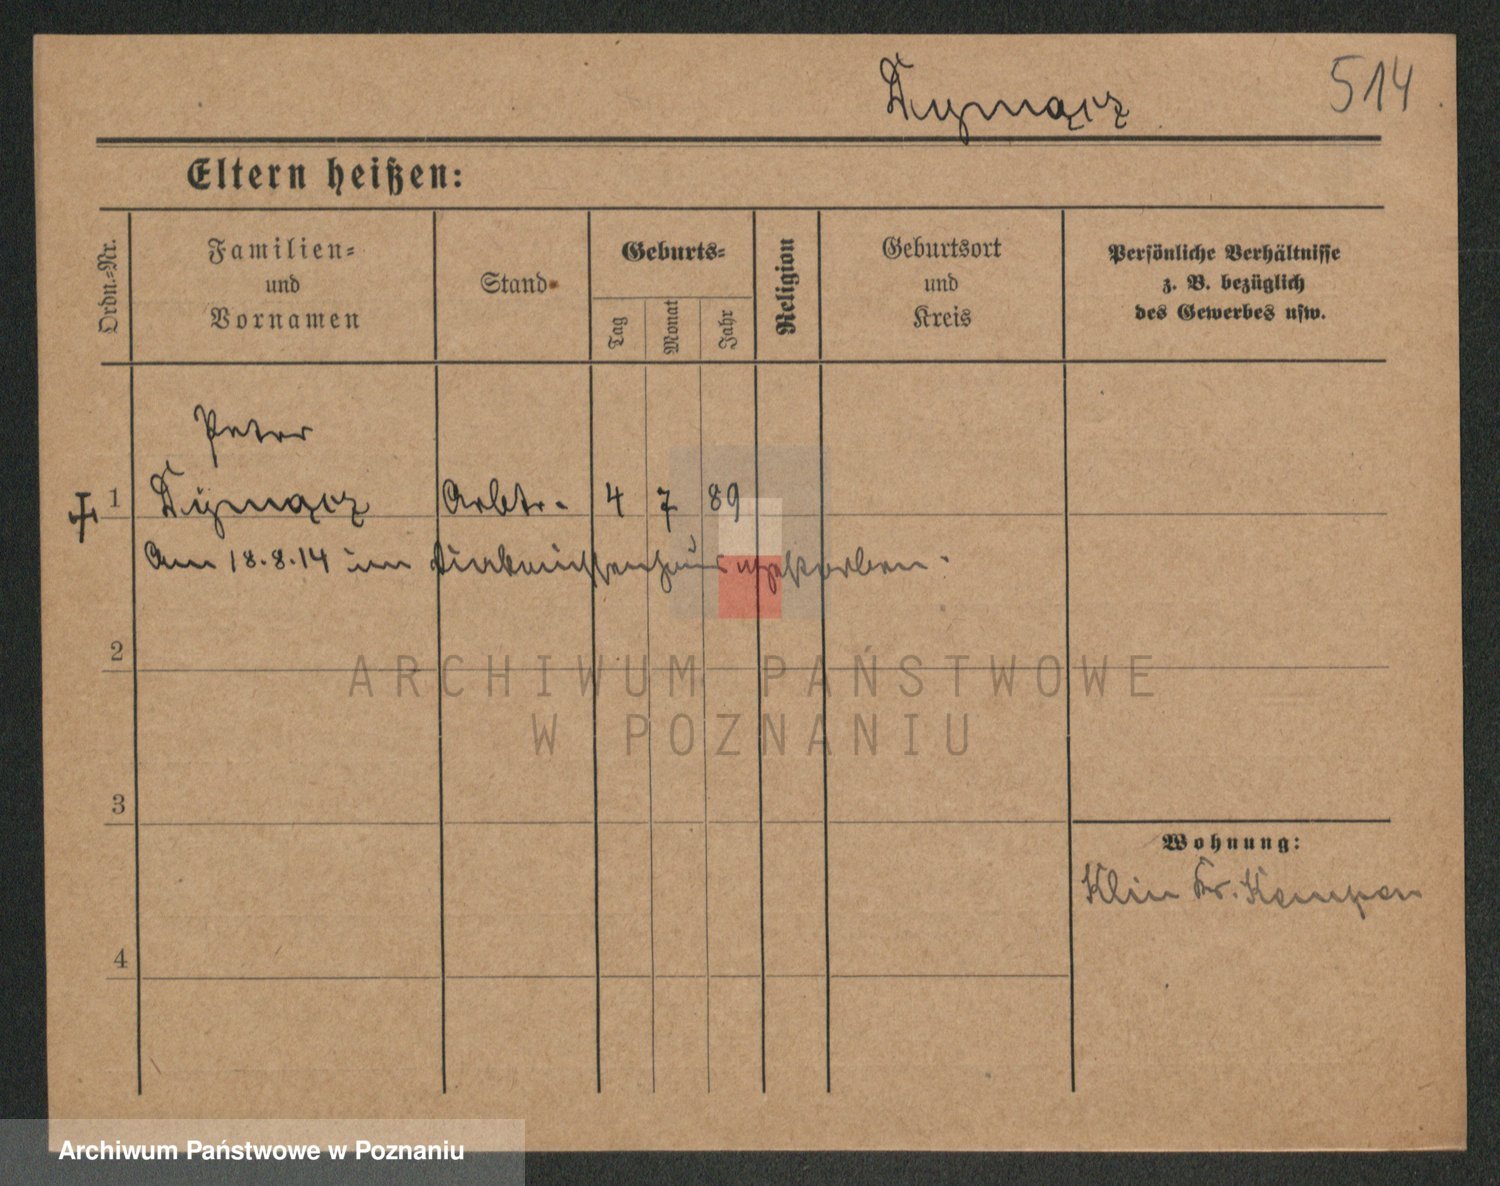 Dymacz
514
Eltern heißen:
Ordn.-Nr.
Familien-
und
Vornamen
Stand
Geburts-
Tag
Monat
Jahr
Religion
Geburtsort
und
Kreis
Persönliche Verhältnisse
z. B. bezüglich
des Gewerbes usw.
Peter
1 Dymacz Arbtr. 4 7 89
Am 18.8.14 im Diakonissenhaus gestorben.
2
ARCHIWUM PAŃSTWOWE
W POZNANIU
3
Wohnung:
Klin Kr. Kempen
4
Archiwum Państwowe w Poznaniu